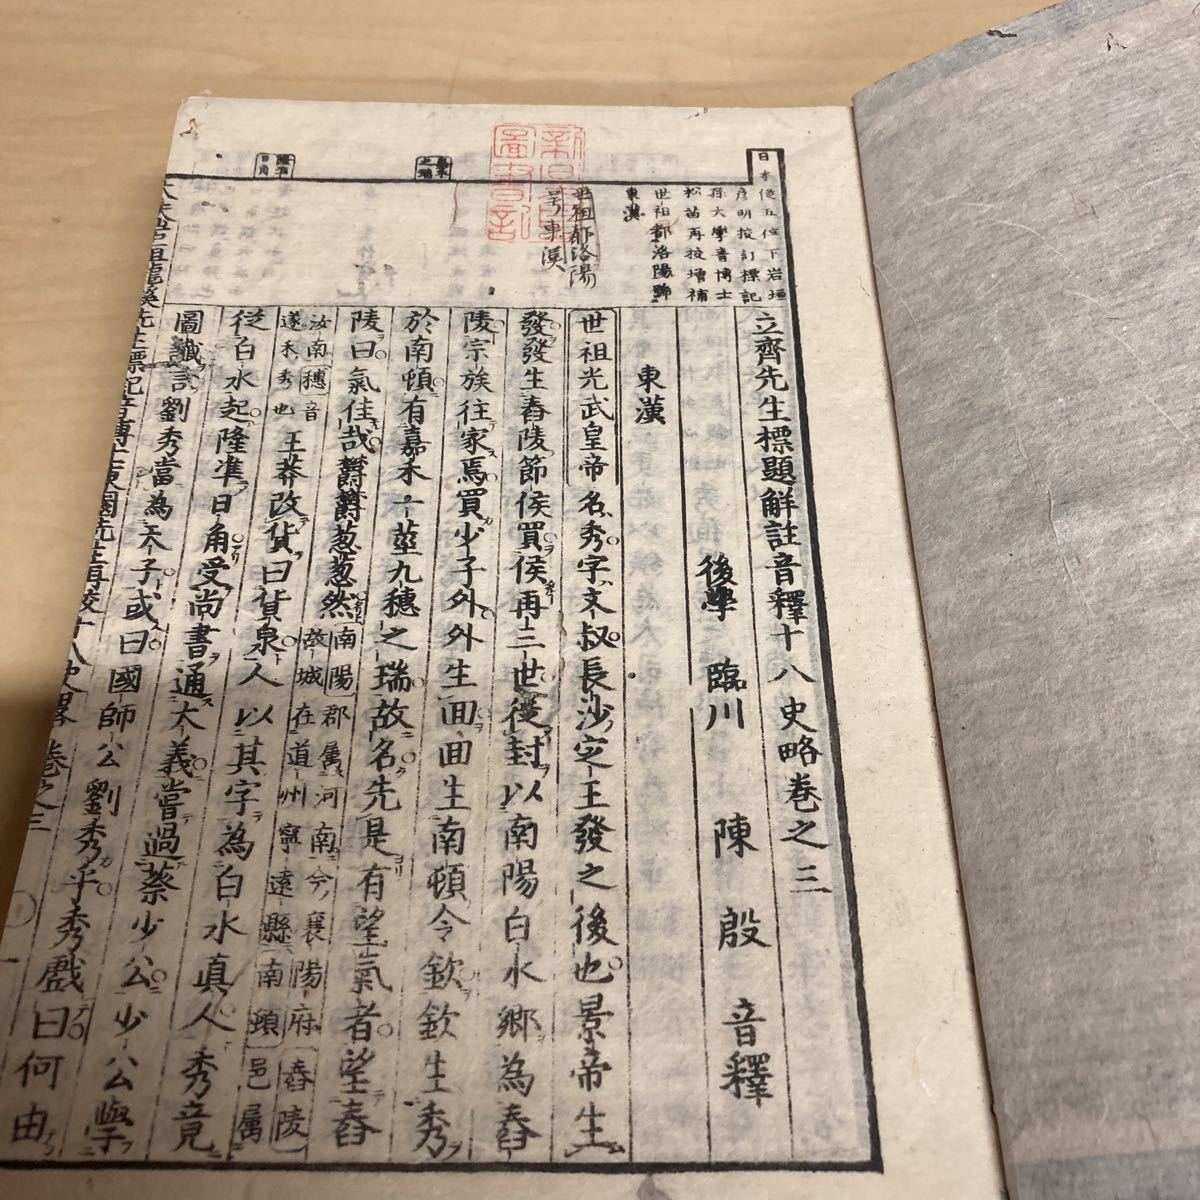 日本從五位下岩垣
彦明挍訂標記
孫大學音博士
松苗再挍增補
世祖都洛陽縣
東漢
世祖都洛陽
号東漢
立齊先生標題解註音釋十八史略卷之三
後學 臨川 陳殷音釋
東漢
世祖光武皇帝名秀字文叔長沙定王發之後也景帝生
發發生舂陵節侯買侯再三世從封以南陽白水鄉為舂
陵宗族往家焉買少子外外生回回生南頓令欽欽生秀
於南頓有嘉禾一莖九穗之瑞故名先是有望氣者望舂
陵曰氣佳哉欝欝葱葱然南陽郡屬河南今襄陽府舂陵
故城在道州寧遠縣南頓邑屬
汝南穗音
遂禾秀也王莽改貨曰貨泉人以其字為白水真人秀竟
從白水起隆準日角受尚書通大義嘗過蔡少公少公學
圖讖記劉秀當為天子或曰國師公劉秀乎秀戲曰何由
十八史略 卷之三